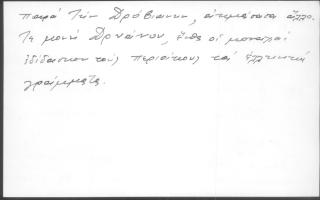 παρά τήν Δρόβιανην, ἀτιμάσασα ἄλλο.
Τῇ μονῇ Δρυάνου, ἔνθα οἱ μοναχοί
ἐδίδασκον τούς περιοίκους τά ἑλληνικά
γράμματα.